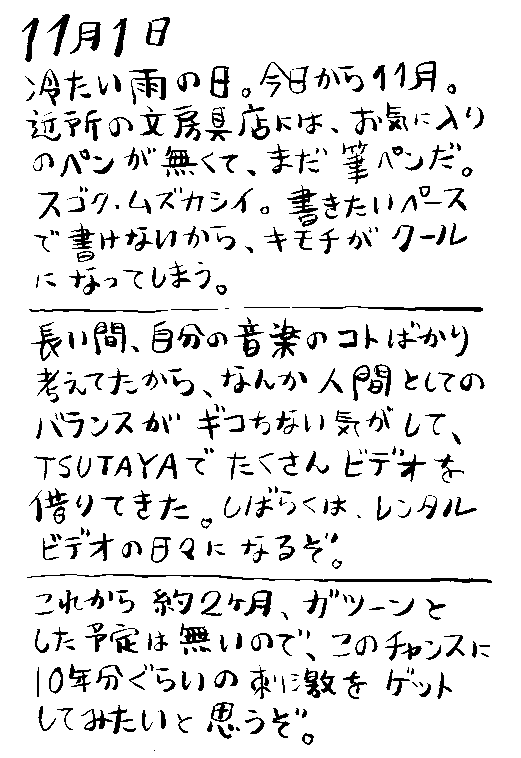 11月1日
冷たい雨の日。今日から11月。
近所の文房具店には、お気に入り
のペンが無くて、まだ筆ペンだ。
スゴク、ムズカシイ。書きたいペース
で書けないから、キモチがクール
になってしまう。
長い間、自分の音楽のコトばかり
考えてたから、なんか人間としての
バランスがギコちない気がして、
TSUTAYAでたくさんビデオを
借りてきた。しばらくは、レンタル
ビデオの日々になるぞ。
これから約2ケ月、ガツーンと
した予定は無いので、このチャンスに
10年分ぐらいの刺激をゲット
してみたいと思うぞ。